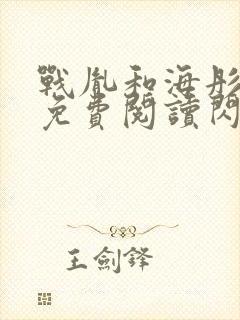 戰胤和海彤
免費閱讀閃
王劍鋒